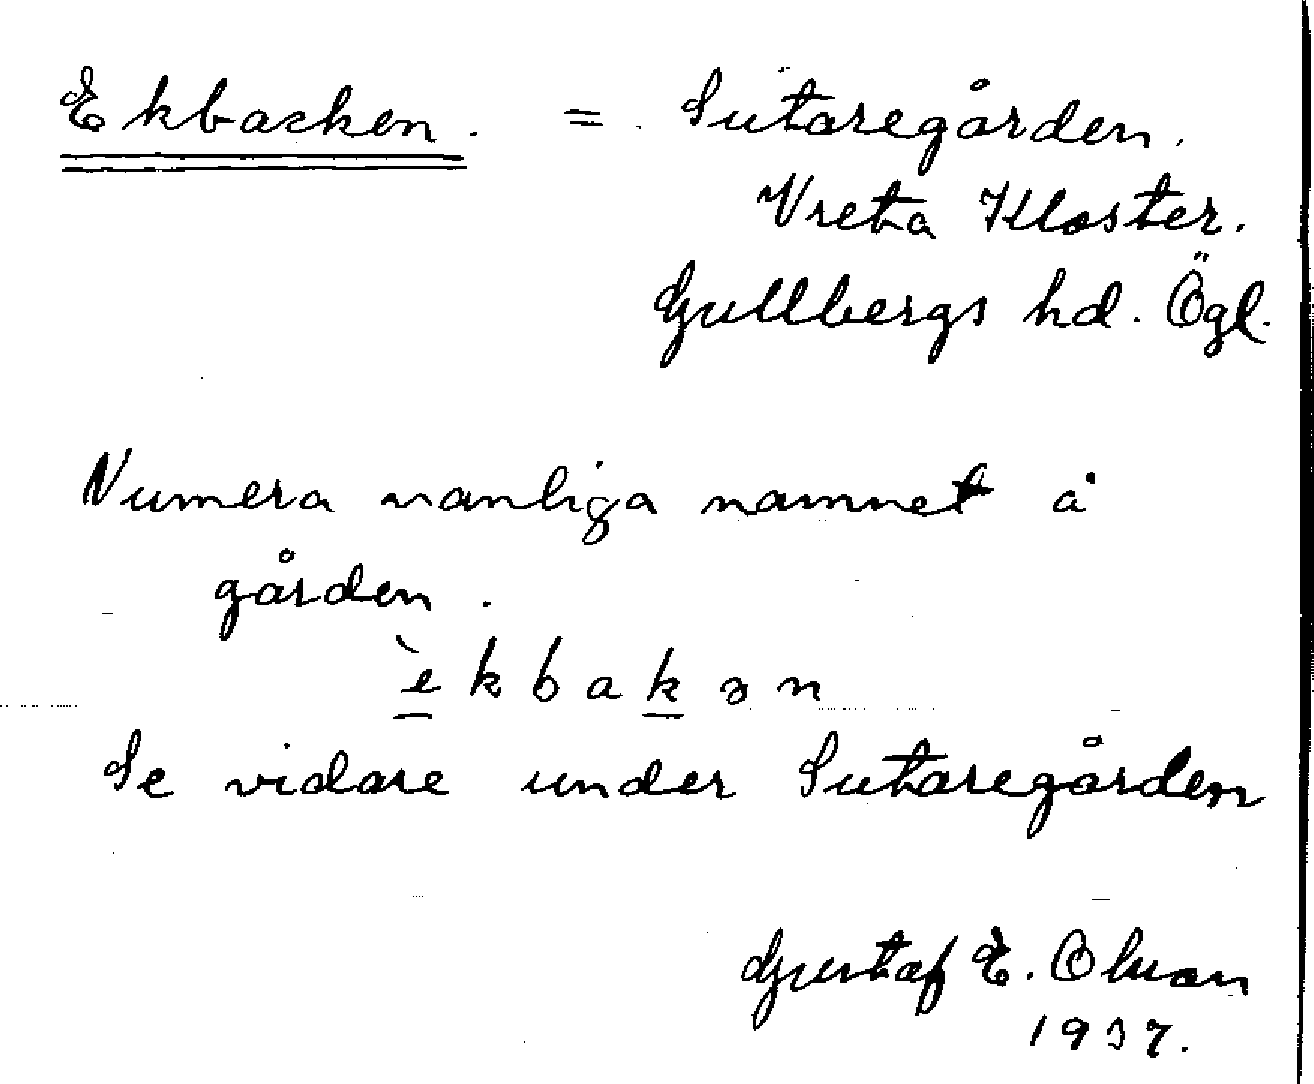 Ekbacken. = Sutaregården.
Vreta Kloster.
Gullbergs hd. Ögl.
Numera vanliga namnet å
gården.
̀ekbakən
Se vidare under Sutaregården
Gustaf E. Olsson
1937.